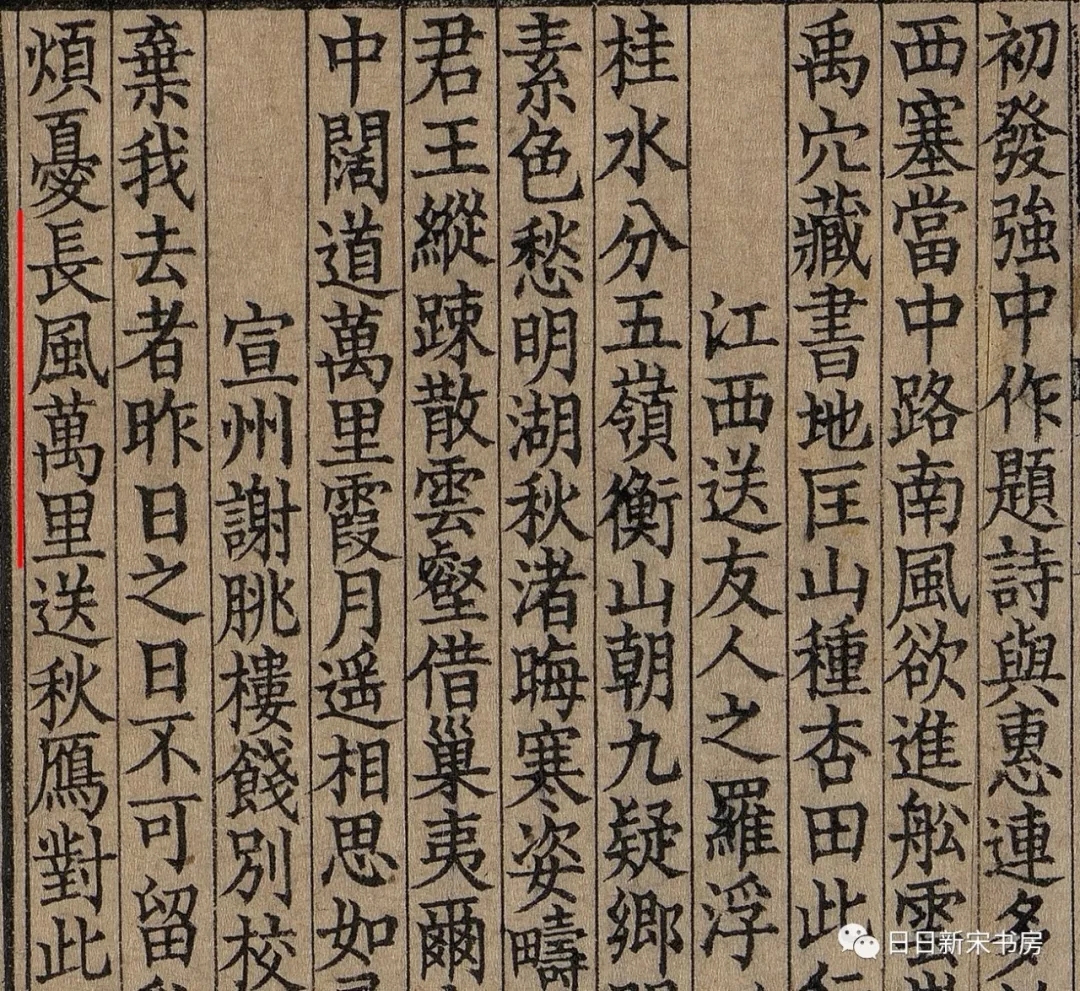 初發強中作題詩與惠連多
西塞當中路南風欲進舩雲
禹穴藏書地匡山種杏田此
江西送友人之羅浮
桂水分五嶺衡山朝九疑鄉
素色愁明湖秋渚晦寒姿疇
君王縱踈散雲壑借巢夷爾
中闊道萬里霞月遥相思如
宣州謝脁樓餞別校
棄我去者昨日之日不可留
煩憂長風萬里送秋鴈對此
日日新宋书房